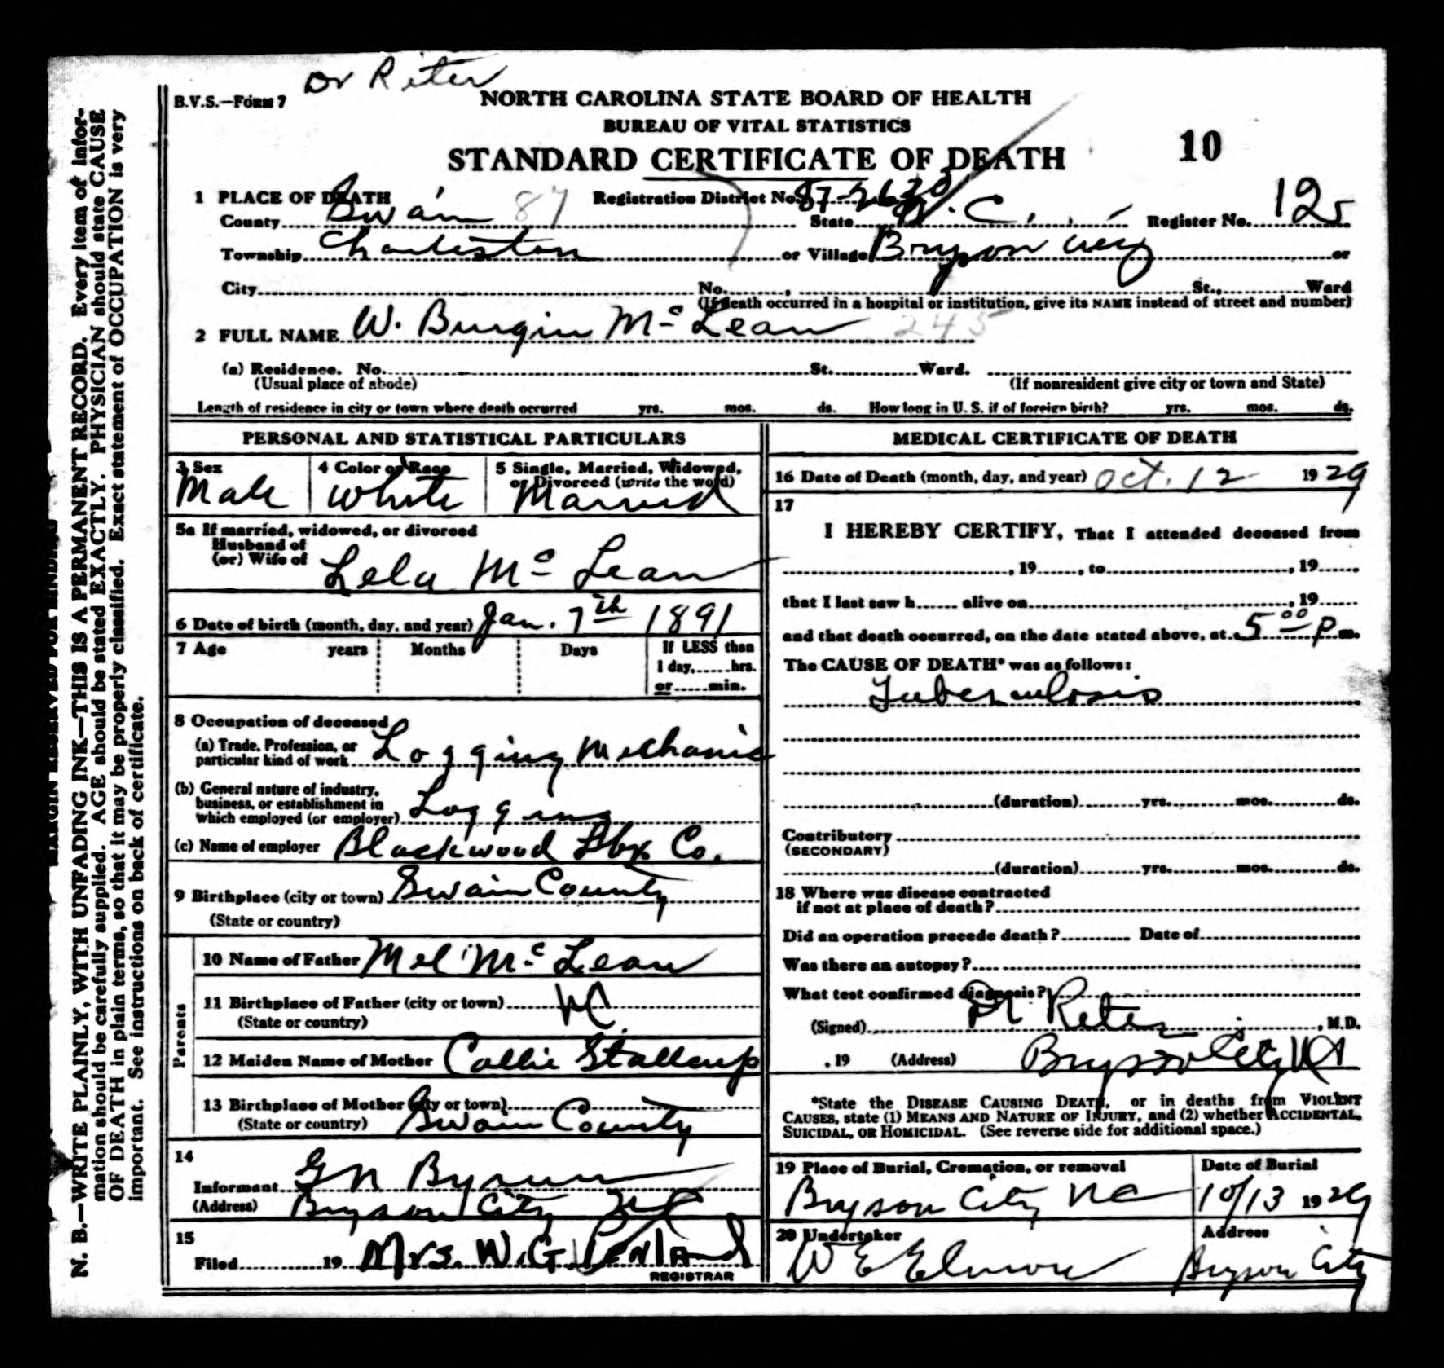 Dr Reter
B.V.S.—Form 7
NORTH CAROLINA STATE BOARD OF HEALTH
BUREAU OF VITAL STATISTICS
STANDARD CERTIFICATE OF DEATH
10
1 PLACE OF DEATH Registration District No. 87-2630
County Swain 87 State N.C. Register No. 125
Township Charleston or Village Bryson City or
City No. , St., Ward
(If death occurred in a hospital or institution, give its NAME instead of street and number)
2 FULL NAME W. Burgin Mc Lean 245
(a) Residence. No. St. Ward.
(Usual place of abode) (If nonresident give city or town and State)
Length of residence in city or town where death occurred yrs. mos. ds. How long in U. S. if of foreign birth? yrs. mos. ds.
PERSONAL AND STATISTICAL PARTICULARS
3 Sex 4 Color or Race 5 Single, Married, Widowed,
or Divorced (write the word)
Male White Married
5a If married, widowed, or divorced
Husband of
(or) Wife of Lela Mc Lean
6 Date of birth (month, day, and year) Jan. 7th 1891
7 Age years Months Days If LESS than
1 day, hrs.
or min.
8 Occupation of deceased
(a) Trade, Profession, or
particular kind of work Logging Mechanic
(b) General nature of industry,
business, or establishment in
which employed (or employer) Logging
(c) Name of employer Blackwood Lbr Co.
9 Birthplace (city or town) Swain County
(State or country)
Parents
10 Name of Father Mel Mc Lean
11 Birthplace of Father (city or town) NC.
(State or country)
12 Maiden Name of Mother Callie Stallcup
13 Birthplace of Mother (city or town)
(State or country) Swain County
14
Informant G N Byrum
(Address) Bryson City NC
15
Filed 19 Mrs. W.G. Penland
REGISTRAR
MEDICAL CERTIFICATE OF DEATH
16 Date of Death (month, day, and year) Oct. 12 1929
17
I HEREBY CERTIFY, That I attended deceased from
, 19 , to , 19 .
that I last saw h alive on , 19
and that death occurred, on the date stated above, at 5 00 P m.
The CAUSE OF DEATH* was as follows:
Tuberculosis
(duration) yrs. mos. ds.
Contributory
(SECONDARY)
(duration) yrs. mos. ds.
18 Where was disease contracted
if not at place of death?
Did an operation precede death? Date of
Was there an autopsy?
What test confirmed diagnosis?
(Signed) Dr Reter , M.D.
, 19 (Address) Bryson City NC
*State the DISEASE CAUSING DEATH, or in deaths from VIOLENT
CAUSES, state (1) MEANS AND NATURE OF INJURY, and (2) whether ACCIDENTAL,
SUICIDAL, OR HOMICIDAL. (See reverse side for additional space.)
19 Place of Burial, Cremation, or removal Date of Burial
Bryson City NC 10/13 1929
20 Undertaker Address
W E Elmore Bryson City
N. B.—WRITE PLAINLY, WITH UNFADING INK—THIS IS A PERMANENT RECORD. Every item of infor-
mation should be carefully supplied. AGE should be stated EXACTLY. PHYSICIAN should state CAUSE
OF DEATH in plain terms, so that it may be properly classified. Exact statement of OCCUPATION is very
important. See instructions on back of certificate.